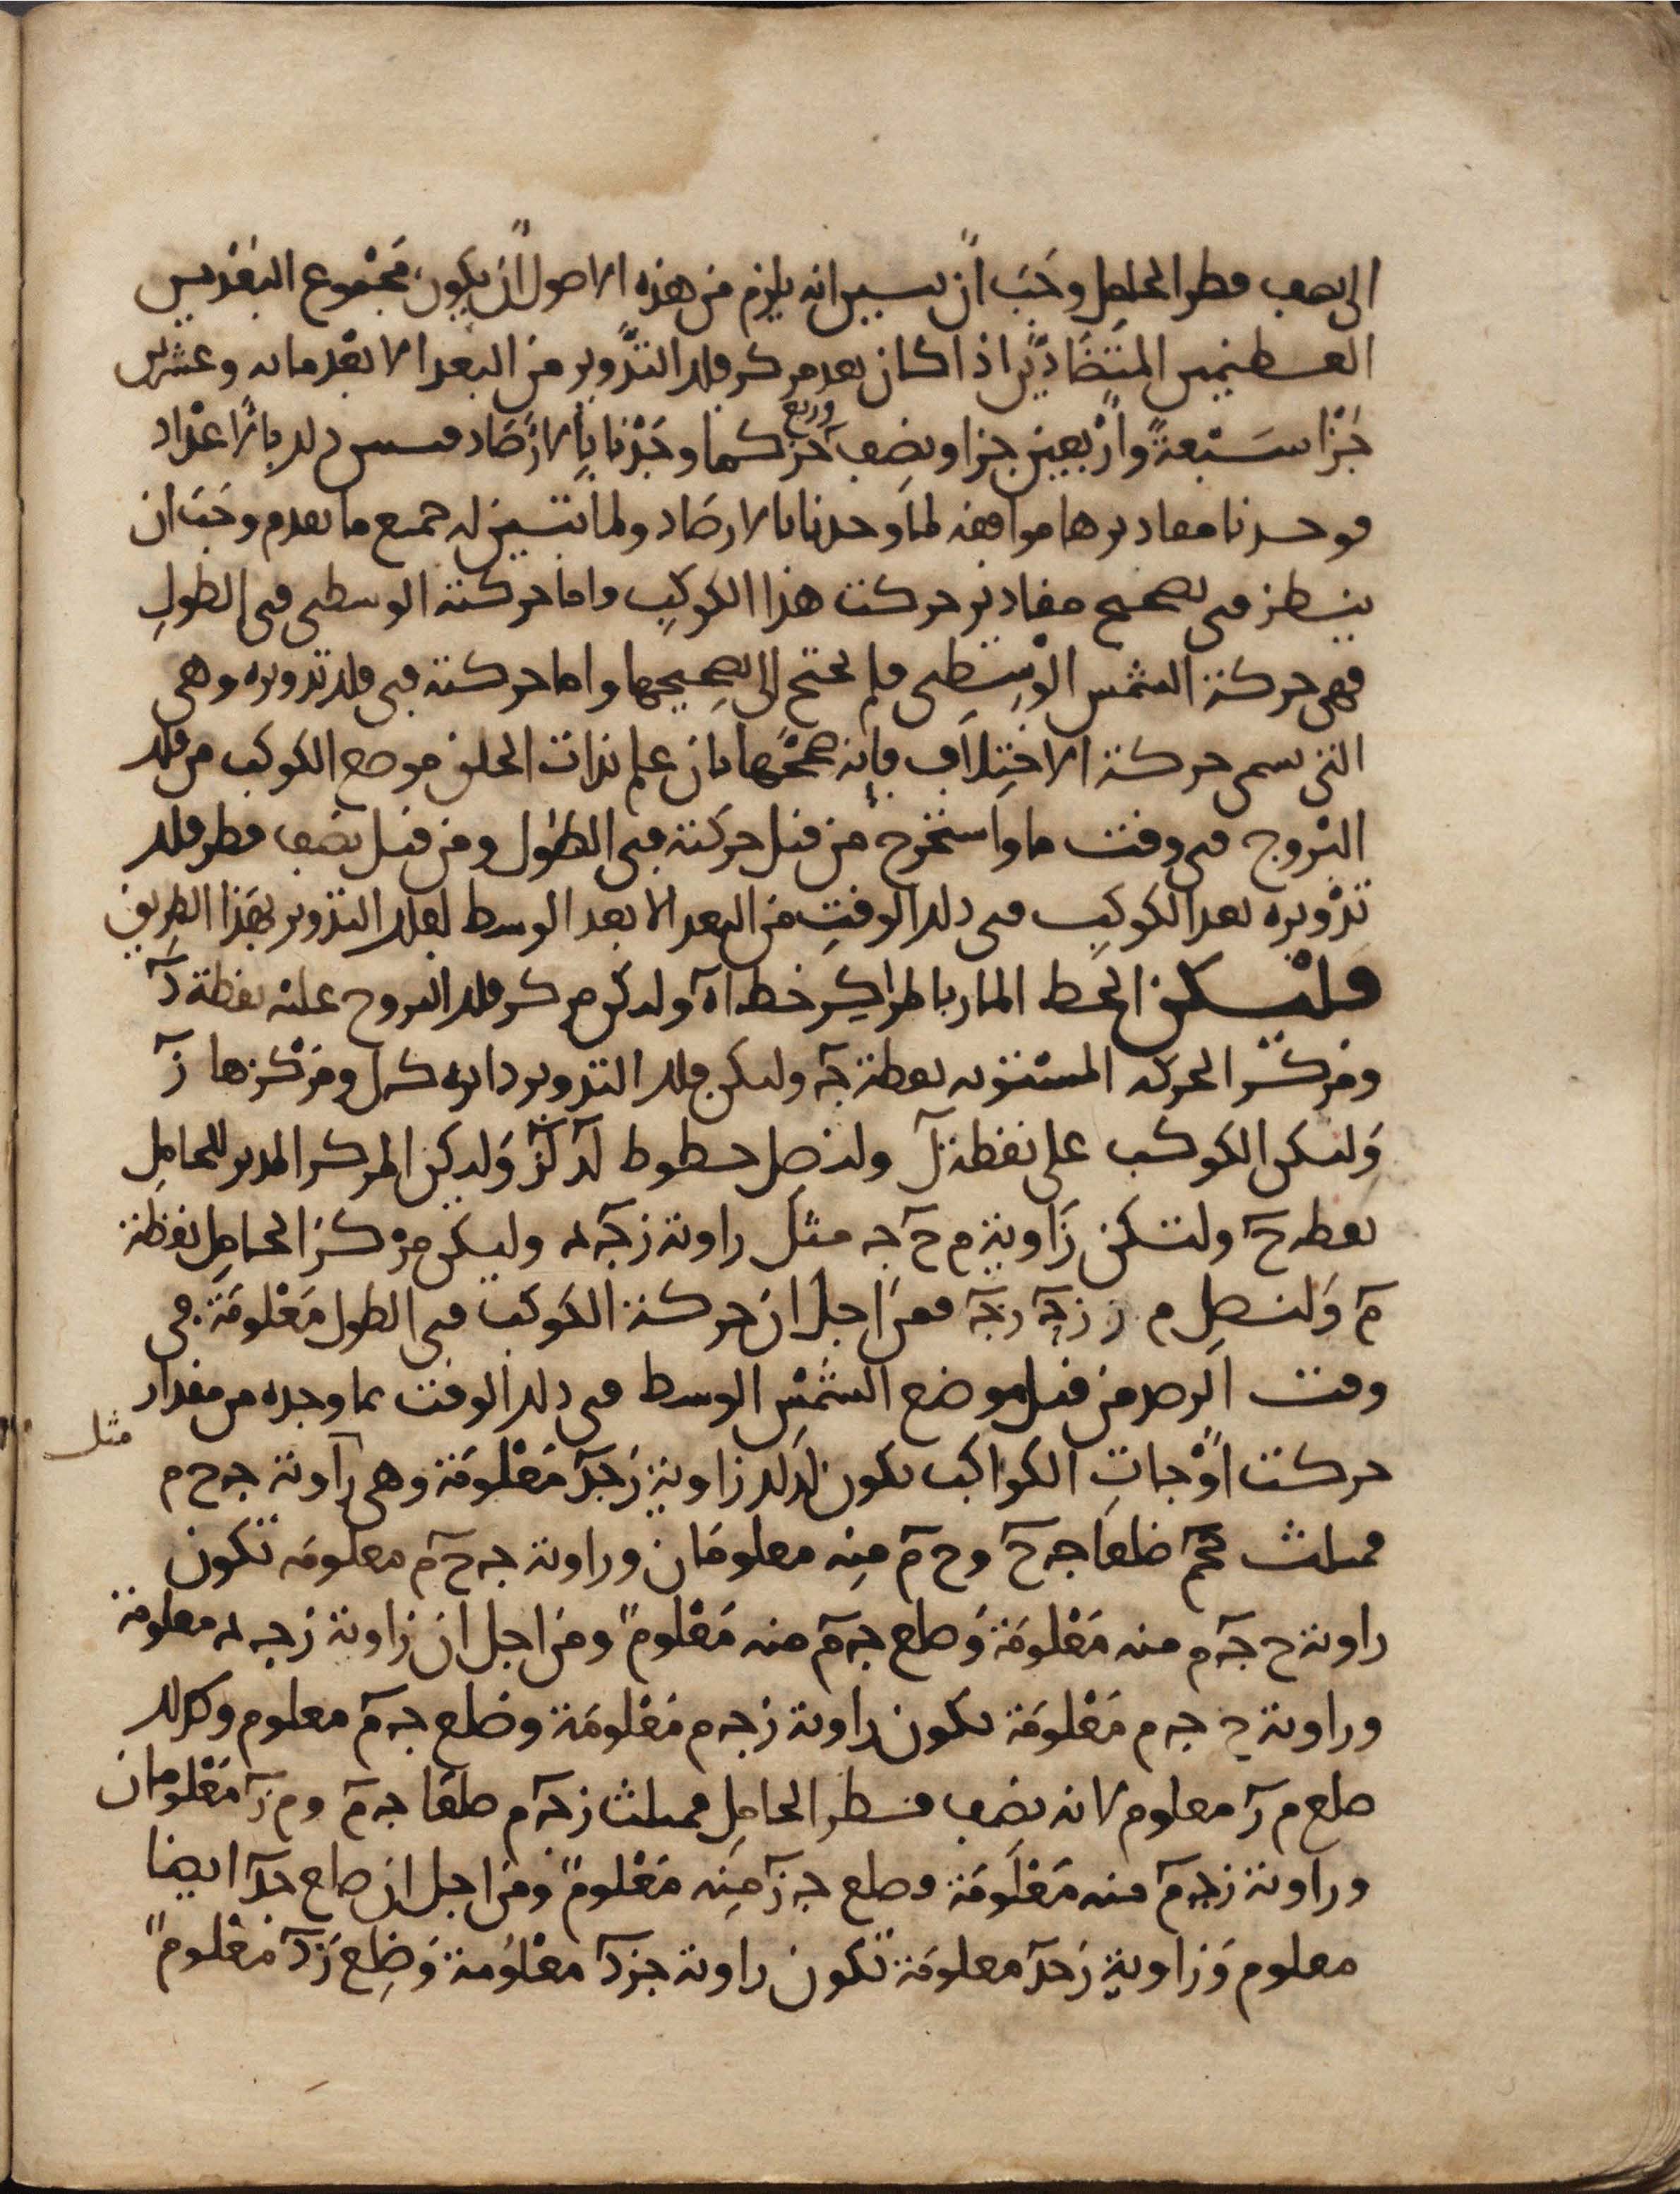 الى نصف قطر الحامل وجب ان نبين انه يلزم من هذه الاصول ان يكون مجموع البعدين
العظيمين المتضادين اذا كان بعد مركز فلك التدوير من البعد الابعد مائه وعشرين
جزا سبعة واربعين جزا ونصف وربع جزء كما وجدنا بالارصاد فبين ذلك بالاعداد
فوجدنا مقاديرها موافقه لما وجدنا بالارصاد ولما تبين له جميع ما تقدم وجب ان
ينظر في تصحيح مقادير حركت هذا الكوكب واما حركته الوسطى في الطول
فهي حركة الشمس الوسطى فلم يحتج الى تصحيحها واما حركته في فلك تدويره وهي
التي تسمى حركة الاختلاف فانه صححها بان علم بذات الحلق موضع الكوكب من فلك
البروج في وقت ما واستخرج من قبل حركته في الطول ومن قبل نصف قطر فلك
تدويره بعد الكوكب في ذلك الوقت من البعد الابعد الوسط لفلك التدوير بهذا الطريق
فليكن الخط المار بالمراكز خط اه وليكن مركز فلك البروج عليه نقطة د
ومركز الحركه المستويه نقطة جه وليكن فلك التدوير دايره كل ومركزها ز
وليكن الكوكب على نقطة ل ولنصل خطوط وليكن المركز المدير للحامل
نقطه ح ولتكن زاوية م ح جه مثل زاوية ز جه د وليكن مركز الحامل نقطة
م ولنصل م ز ز جه فمن اجل ان حركة الكوكب في الطول معلومة في
وقت الرصد من قبل موضع الشمس الوسط في ذلك الوقت بما وجده من مقدار
حركت اوجات الكواكب تكون لذلك زاوية زجد معلومة وهي مثل زاوية جه ح م
فمثلث جحم ضلعا جه ح و ح م منه معلومان وزاوية جه ح م معلومه تكون
زاوية ح جه م منه معلومة وضلع جه م منه معلوم ومن اجل ان زاوية ز جه د معلومة
وزاوية ح جه م معلومة تكون زاوية ز جه م معلومة وضلع جه م معلوم وكذلك
ضلع م ز معلوم لانه نصف قطر الحامل فمثلث ز جه م ضلعا جه م و م ز معلومان
وزاوية ز جه م منه معلومة وضلع جه ز منه معلوم ومن اجل ان ضلع جد ايضا
معلوم وزاوية زجد معلومة تكون زاوية جزد معلومة وضلع زد معلوم